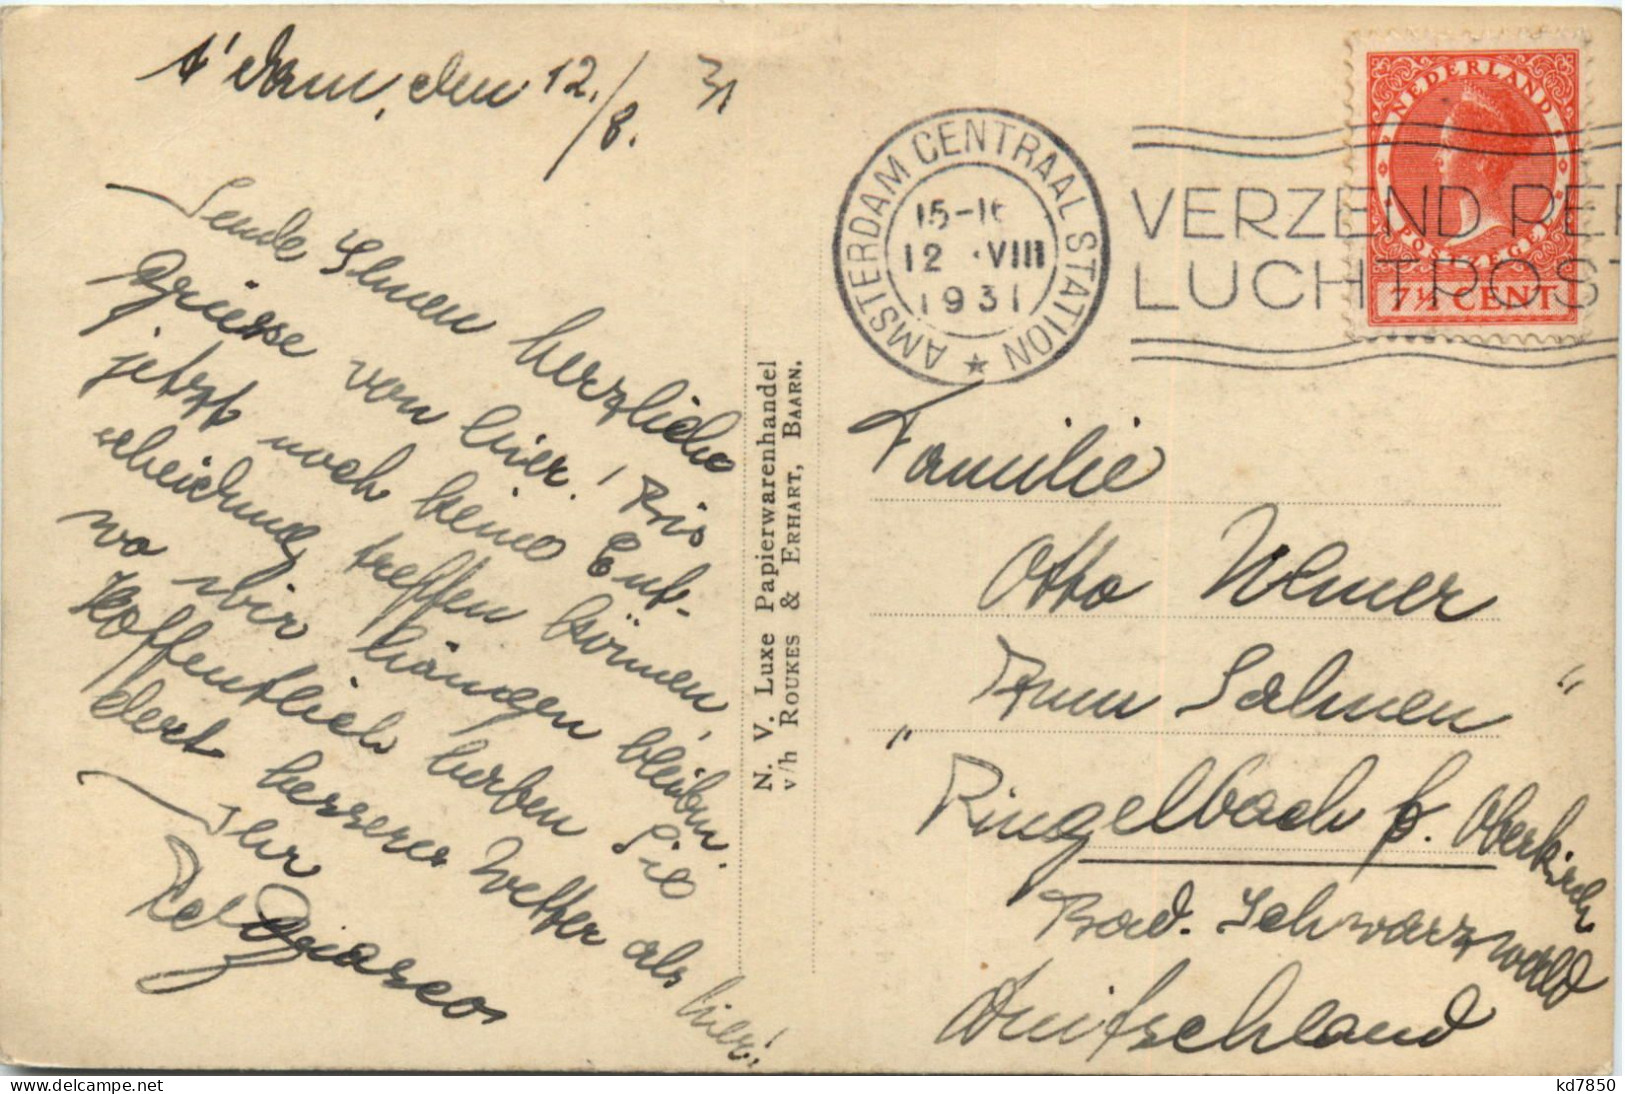 A'dam, den 12./8. 31
Sende Ihnen herzliche
Grüsse von hier! Bis
jetzt noch keine Ent-
scheidung treffen können,
wo wir hängen bleiben.
Hoffentlich haben Sie
dort besseres Wetter als hier!
Ihr
N. V. Luxe Papierwarenhandel
v/h Roukes & Erhart, Baarn.
AMSTERDAM CENTRAAL STATION
15-16
12 VIII
1931
VERZEND PER
LUCHTPOST
NEDERLAND
POSTZEGEL
7½ CENT
Familie
Otto
"Zum Salmen"
Ringelbach b. Oberkirch
Bad. Schwarzwald
Deutschland
kd7850